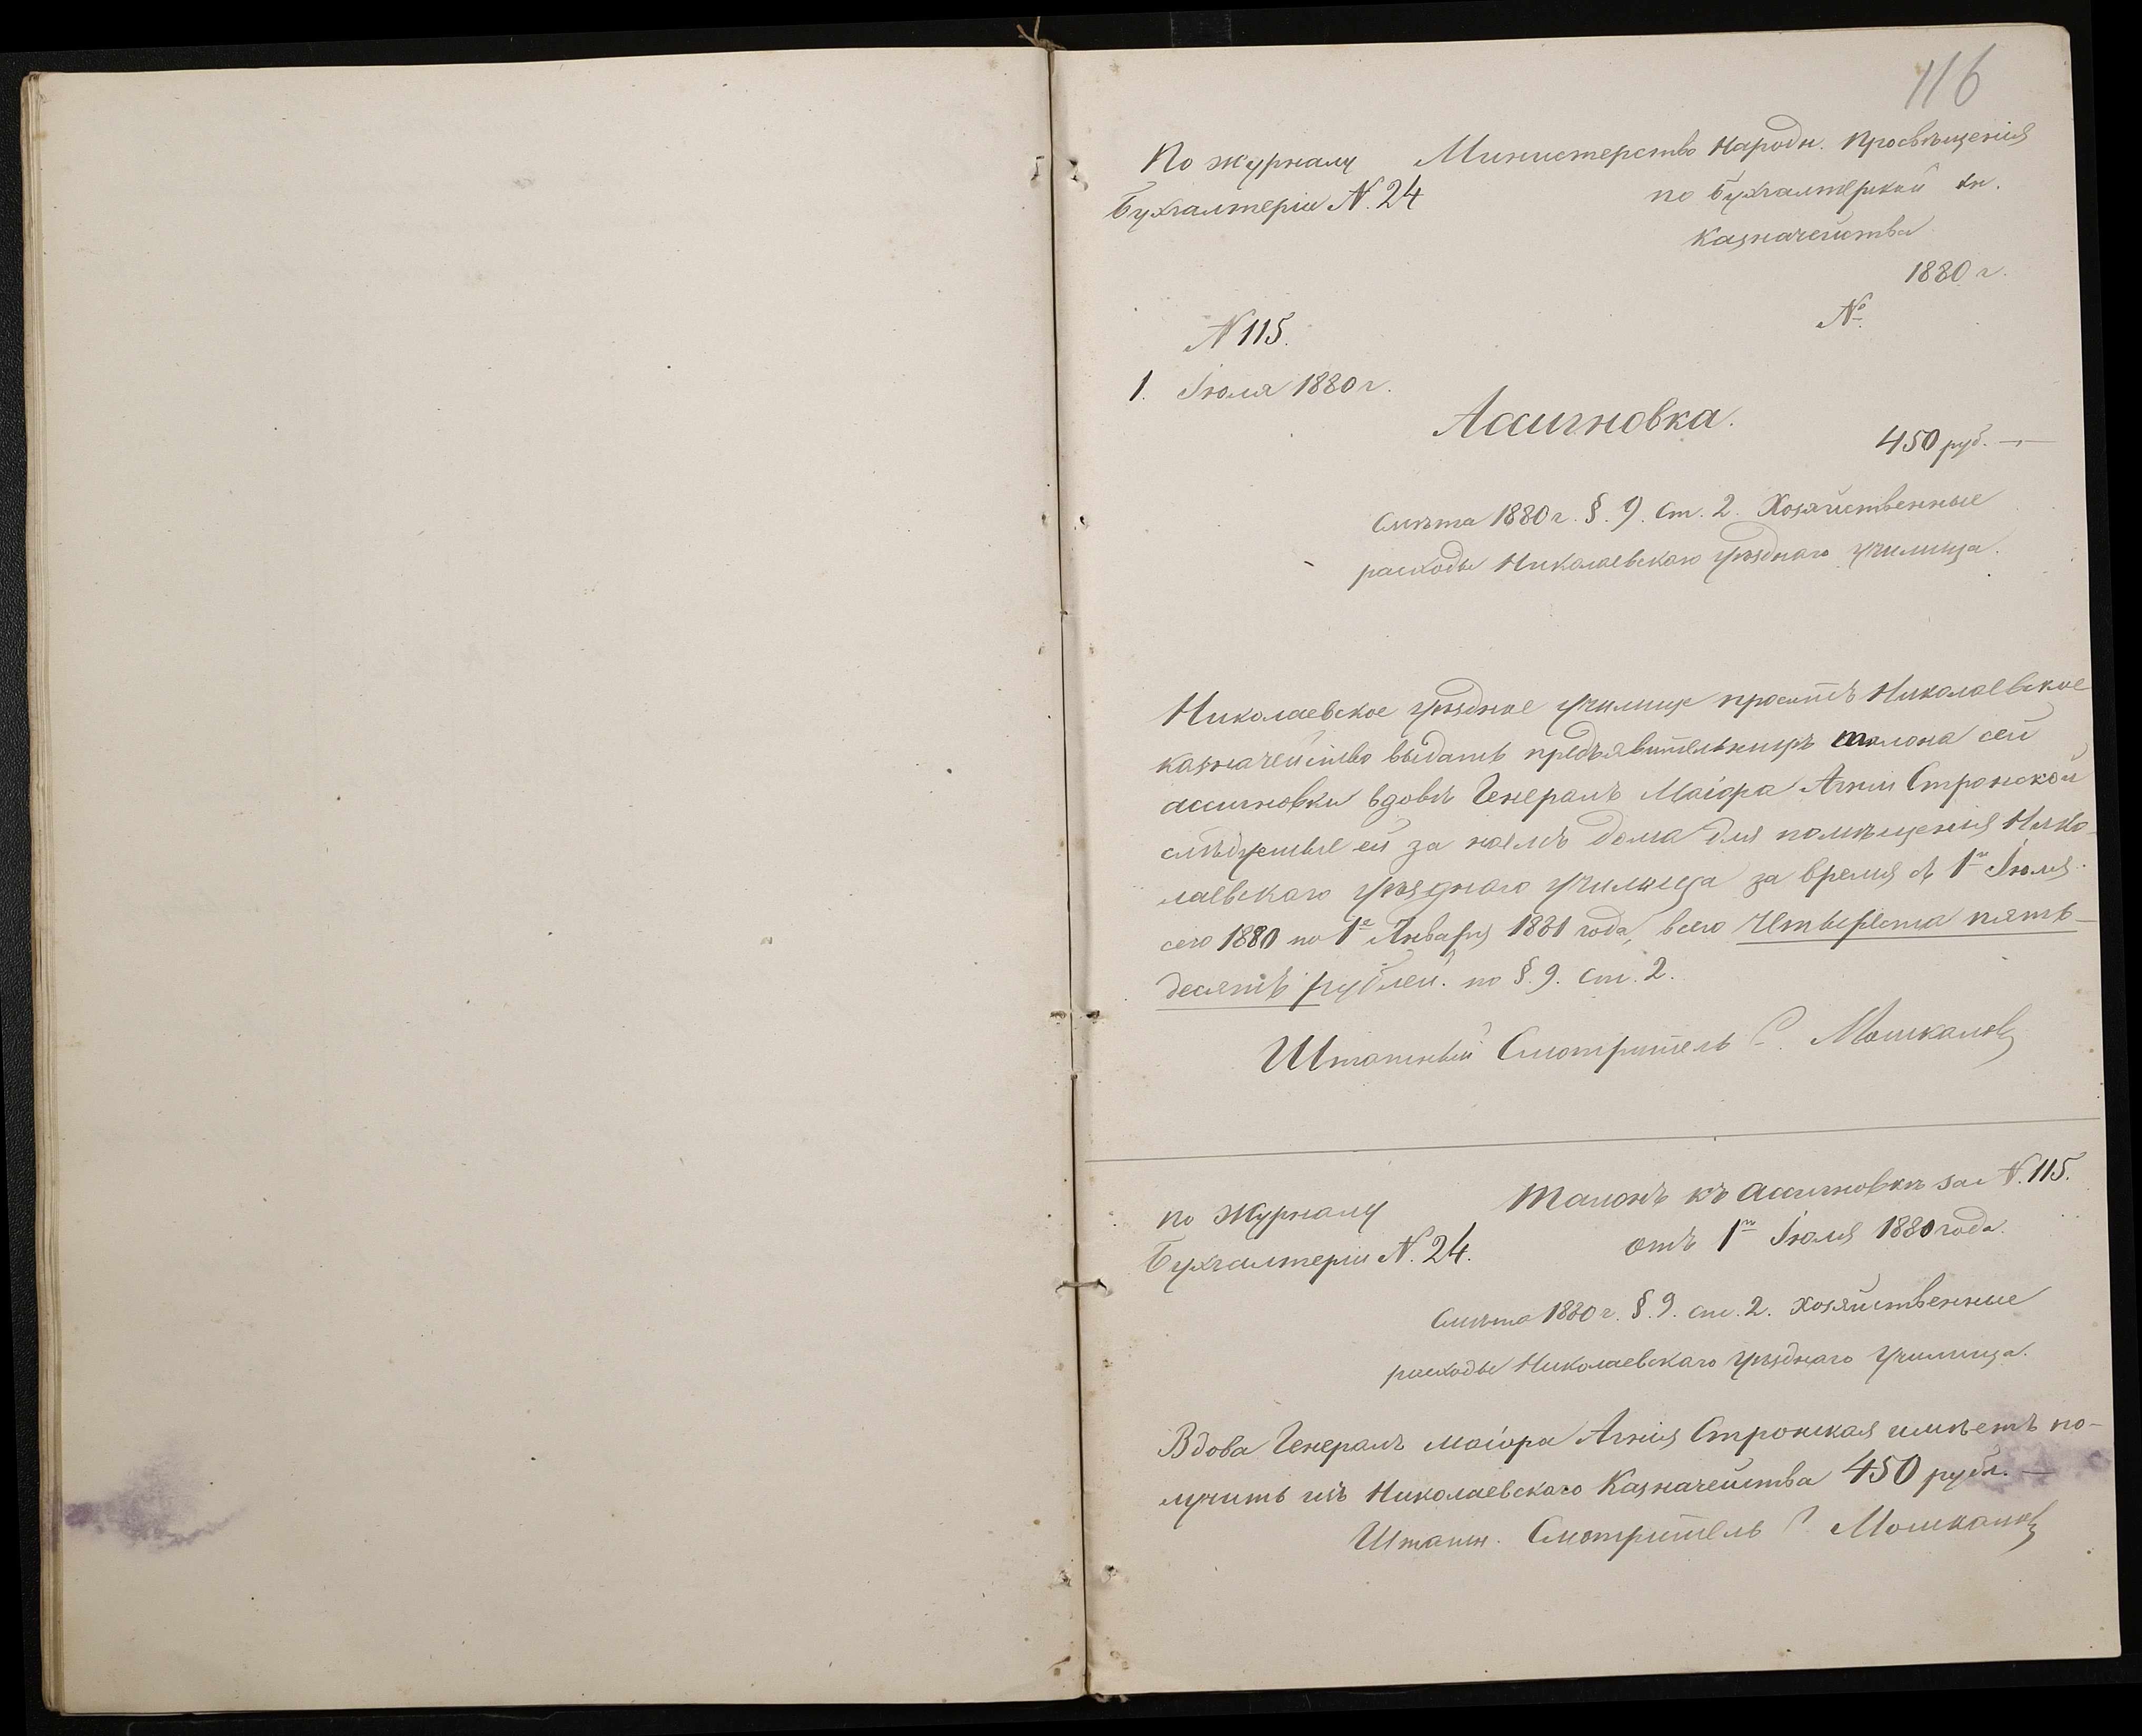 116
По журналу
Бухгалтеріи N. 24
Министерство Народн. Просвѣщенія
по бухгалтерской кн.
Казначейства
1880 г.
№.
N 115.
1. Іюля 1880 г.
Ассигновка.
450 руб. —
Смѣта 1880 г. §. 9. ст. 2. Хозяйственные
расходы Николаевскаго уѣзднаго училища.
Николаевское уѣздное училище проситъ Николаевское
казначейство выдать предъявительницѣ талона сей
ассигновки вдовѣ Генералъ Маіора Агніи Стронской
слѣдуемые ей за наемъ дома для помѣщенія Нико-
лаевскаго уѣзднаго училища за время съ 1го Іюля
сего 1880 по 1е Января 1881 года, всего четыреста пять-
десятъ рублей. по §. 9. ст. 2.
Штатный Смотритель С. Мошкалов
по Журналу
Бухгалтеріи N. 24.
Талонъ къ ассигновкѣ за N. 115.
отъ 1го Іюля 1880 года.
Смѣта 1880 г. §. 9. ст. 2. Хозяйственные
расходы Николаевскаго уѣзднаго Училища.
Вдова Генералъ маіора Агнія Стронская имѣетъ по-
лучить изъ Николаевскаго Казначейства 450 рубл. —
Штатн. Смотритель С. Мошкалов